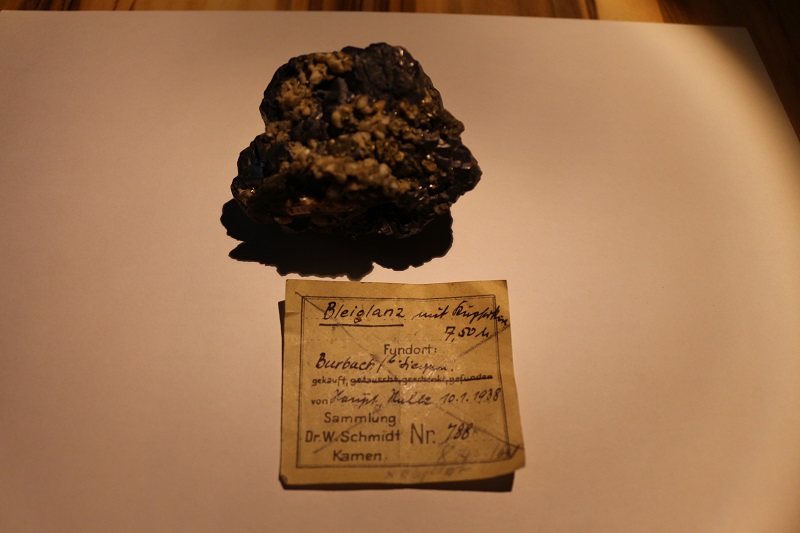 Bleiglanz mit Kupferkies
7,50 M
Fundort:
Burbach / b. Siegen.
gekauft, getauscht, geschenkt, gefunden
von 10.1.1938
Sammlung
Dr. W. Schmidt Nr. 788
Kamen.